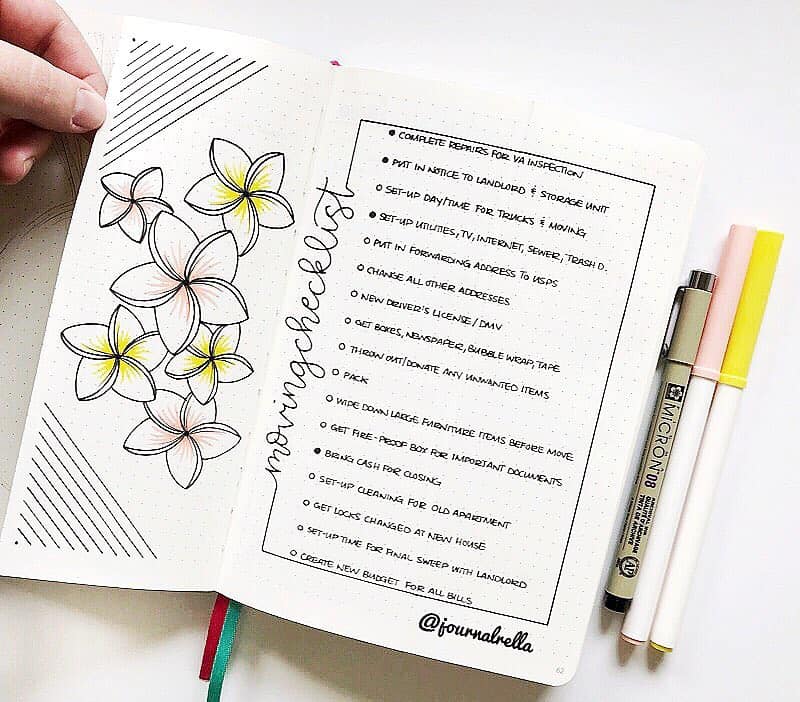 movingchecklist
COMPLETE REPAIRS FOR VA INSPECTION
PUT IN NOTICE TO LANDLORD & STORAGE UNIT
SET-UP DAY/TIME FOR TRUCKS & MOVING
SET-UP UTILITIES, TV, INTERNET, SEWER, TRASH D.
PUT IN FORWARDING ADDRESS TO USPS
CHANGE ALL OTHER ADDRESSES
NEW DRIVER'S LICENSE/DMV
GET BOXES, NEWSPAPER, BUBBLE WRAP, TAPE
THROW OUT/DONATE ANY UNWANTED ITEMS
PACK
WIPE DOWN LARGE FURNITURE ITEMS BEFORE MOVE
GET FIRE-PROOF BOX FOR IMPORTANT DOCUMENTS
BRING CASH FOR CLOSING
SET-UP CLEANING FOR OLD APARTMENT
GET LOCKS CHANGED AT NEW HOUSE
SET-UP TIME FOR FINAL SWEEP WITH LANDLORD
CREATE NEW BUDGET FOR ALL BILLS
@journalrella
62
MICRON 08
ARCHIVAL INK